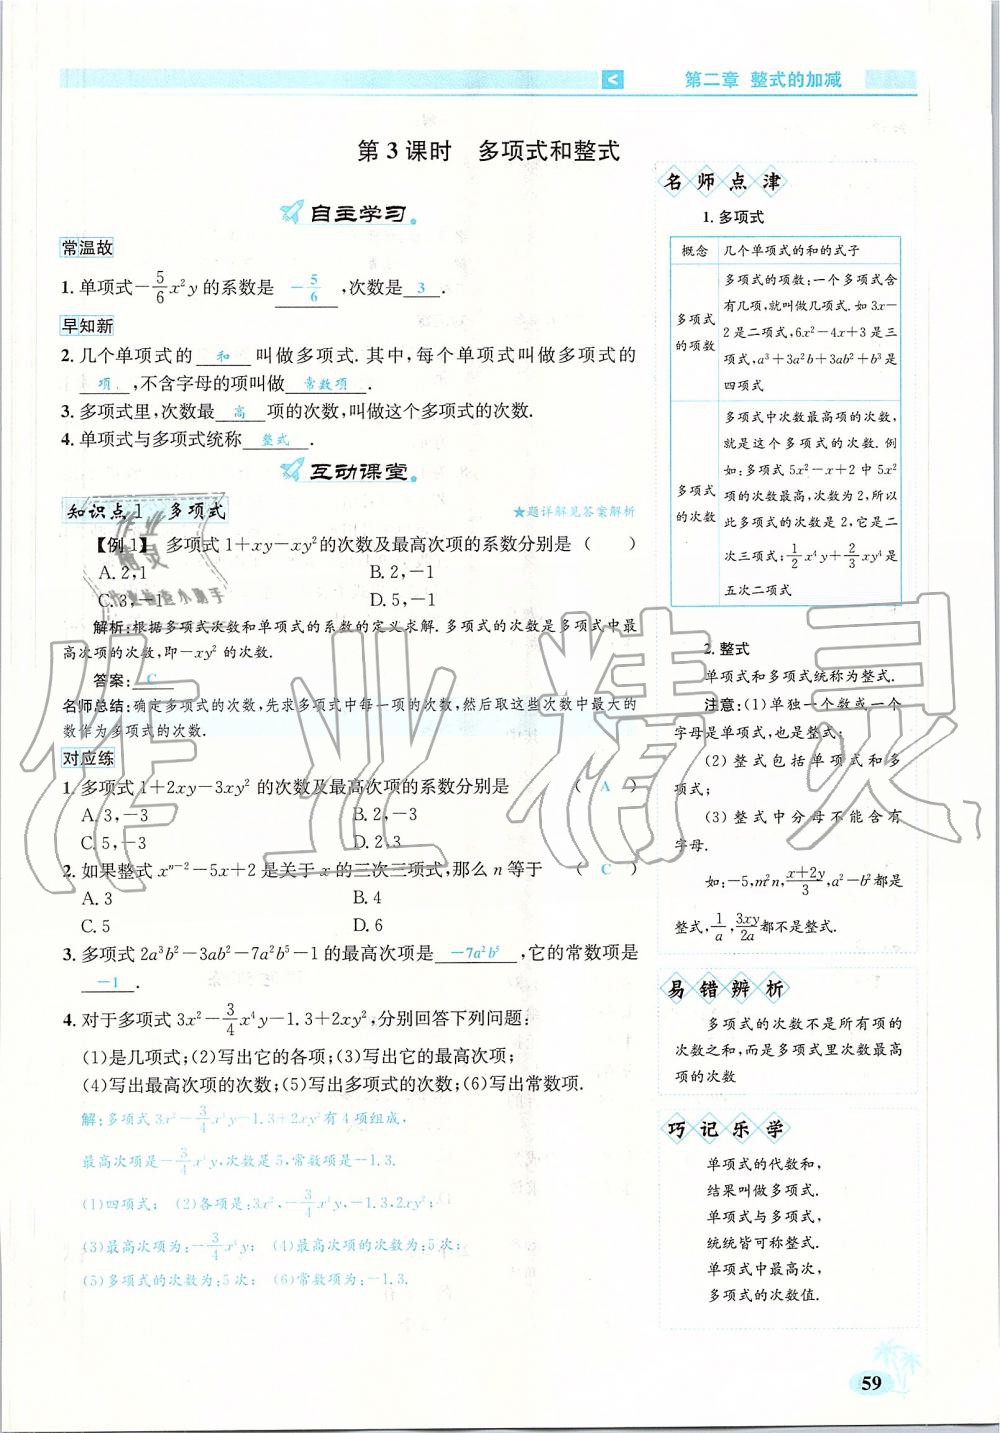 第二章 整式的加减
第3课时 多项式和整式
自主学习
常温故
1. 单项式-5/6x²y的系数是 -5/6 ,次数是 3 .
早知新
2. 几个单项式的 和 叫做多项式. 其中,每个单项式叫做多项式的
项 ,不含字母的项叫做 常数项 .
3. 多项式里,次数最 高 项的次数,叫做这个多项式的次数.
4. 单项式与多项式统称 整式 .
互动课堂
知识点1 多项式
★题详解见答案解析
【例1】 多项式1+xy-xy²的次数及最高次项的系数分别是 ( )
A. 2,1 B. 2,-1
C. 3,-1 D. 5,-1
解析:根据多项式次数和单项式的系数的定义求解. 多项式的次数是多项式中最
高次项的次数,即-xy²的次数.
答案: C
名师总结:确定多项式的次数,先求多项式中每一项的次数,然后取这些次数中最大的
数作为多项式的次数.
对应练
1. 多项式1+2xy-3xy²的次数及最高次项的系数分别是 ( A )
A. 3,-3 B. 2,-3
C. 5,-3 D. 2,3
2. 如果整式xⁿ⁻²-5x+2是关于x的三次三项式,那么n等于 ( C )
A. 3 B. 4
C. 5 D. 6
3. 多项式2a³b²-3ab²-7a²b⁵-1的最高次项是 -7a²b⁵ ,它的常数项是
-1 .
4. 对于多项式3x²-3/4x⁴y-1.3+2xy²,分别回答下列问题:
(1)是几项式;(2)写出它的各项;(3)写出它的最高次项;
(4)写出最高次项的次数;(5)写出多项式的次数;(6)写出常数项.
解:多项式3x²-3/4x⁴y-1.3+2xy²有4项组成,
最高次项是-3/4x⁴y,次数是5,常数项是-1.3.
(1)四项式; (2)各项是:3x²,-3/4x⁴y,-1.3,2xy²;
(3)最高次项为:-3/4x⁴y; (4)最高次项的次数为:5次;
(5)多项式的次数为:5次; (6)常数项为:-1.3.
名师点津
1. 多项式
概念 几个单项式的和的式子
多项式的项数 多项式的项数:一个多项式含
有几项,就叫做几项式. 如3x-
2是二项式,6x²-4x+3是三
项式,a³+3a²b+3ab²+b³是
四项式
多项式的次数 多项式中次数最高项的次数,
就是这个多项式的次数. 例
如:多项式5x²-x+2中5x²
项的次数最高,次数为2,所以
此多项式的次数是2,它是二
次三项式;1/2x⁴y+2/3xy⁴是
五次二项式
2. 整式
单项式和多项式统称为整式.
注意:(1)单独一个数或一个
字母是单项式,也是整式;
(2)整式包括单项式和多
项式;
(3)整式中分母不能含有
字母.
如:-5,m²n,(x+2y)/3,a²-b²都是
整式,1/a,3xy/2a都不是整式.
易错辨析
多项式的次数不是所有项的
次数之和,而是多项式里次数最高
项的次数
巧记乐学
单项式的代数和,
结果叫做多项式.
单项式与多项式,
统统皆可称整式.
单项式中最高次,
多项式的次数值.
59
作业精灵